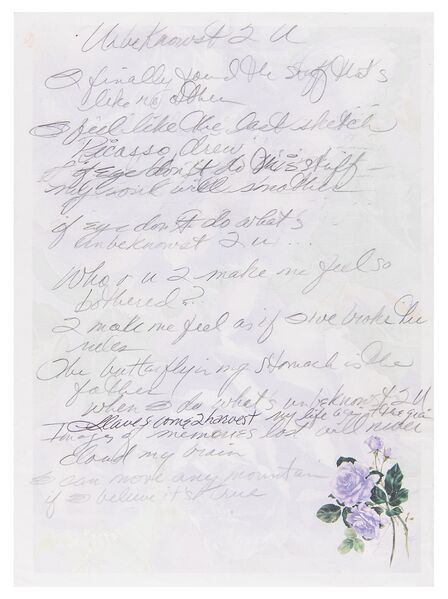 Unbeknowst 2 U
👁 finally found the stuff that's
like no other
👁 feel like the last sketch
Picasso drew
if eye don't do this stuff –
my soul will smother
if eye don't do what's
unbeknowst 2 u ...
Who r u 2 make me feel so
bothered?
2 make me feel as if 👁've broke the
rules
The butterfly in my stomach is the
father
when 👁 do what's unbeknowst 2 U
Slaves come 2 harvest my life
Images of memories lost will never
cloud my brain
👁 can move any mountain
if 👁 believe it's true